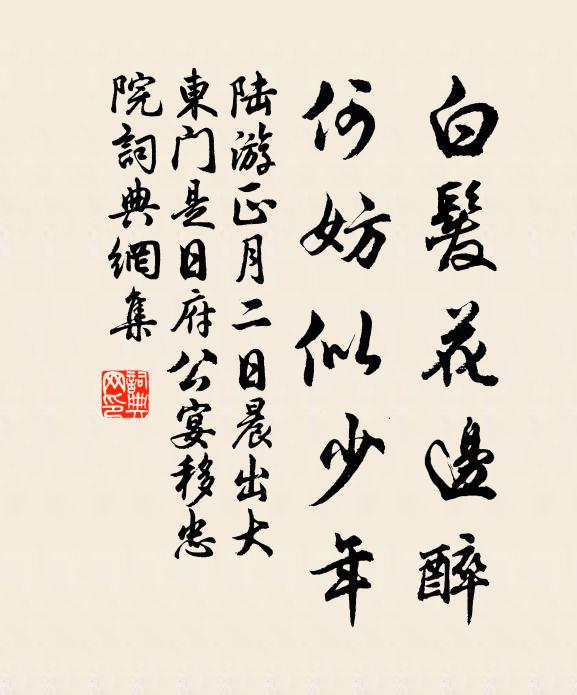 白髮花邊醉
何妨似少年
陆游正月二日晨出大
東门是日府公宴移忠
院詞典網集
詞典網印